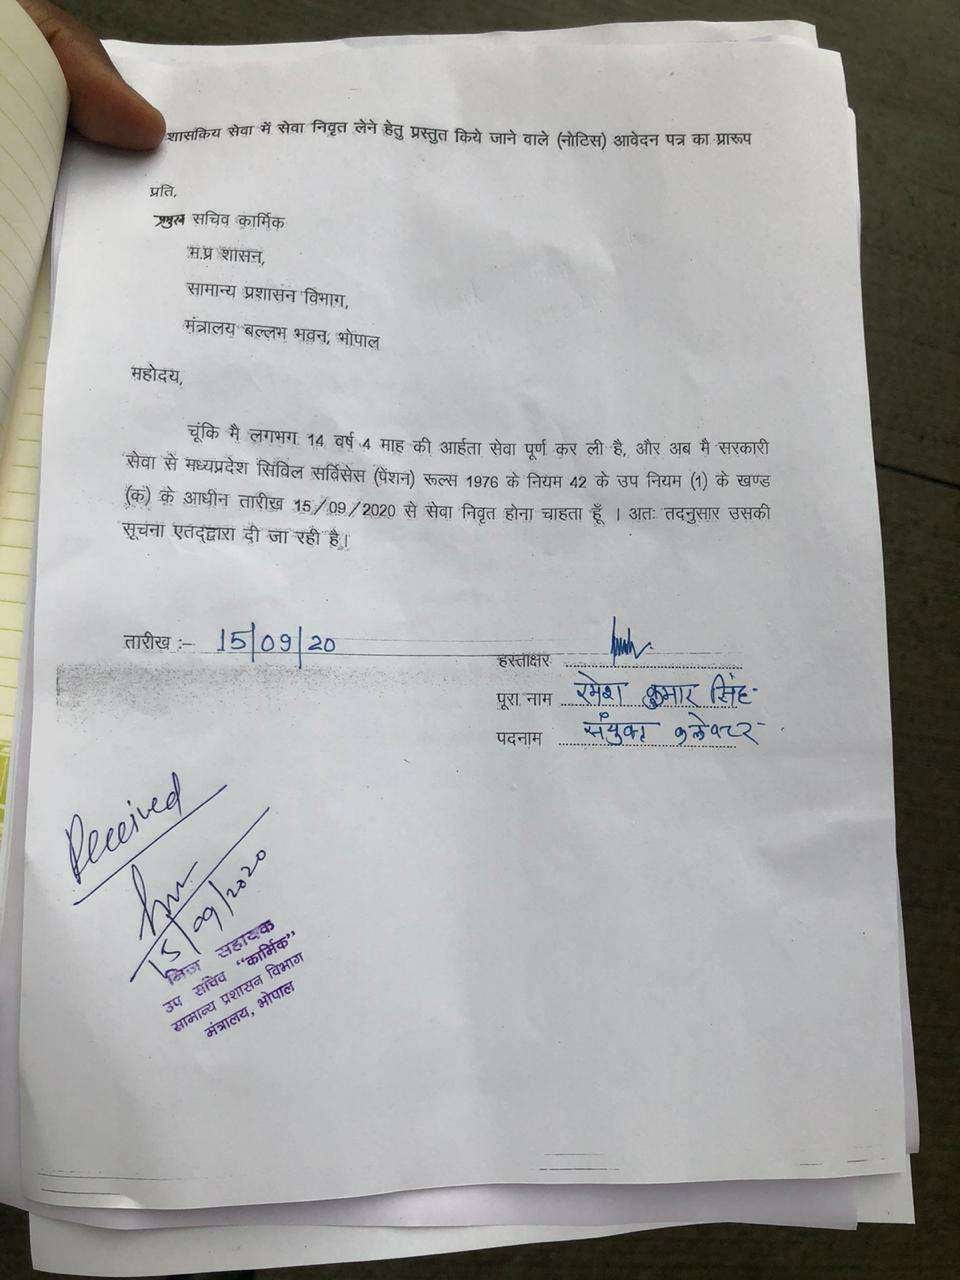 शासकिय सेवा में सेवा निवृत लेने हेतु प्रस्तुत किये जाने वाले (नोटिस) आवेदन पत्र का प्रारूप
प्रति,
प्रमुख सचिव कार्मिक
म.प्र शासन,
सामान्य प्रशासन विभाग,
मंत्रालय बल्लभ भवन, भोपाल
महोदय,
चूंकि मै लगभग 14 वर्ष 4 माह की आर्हता सेवा पूर्ण कर ली है, और अब मै सरकारी
सेवा से मध्यप्रदेश सिविल सर्विसेस (पेंशन) रूल्स 1976 के नियम 42 के उप नियम (1) के खण्ड
(क) के आधीन तारीख 15/09/2020 से सेवा निवृत होना चाहता हूँ । अतः तदनुसार उसकी
सूचना एतद्द्वारा दी जा रही है।
तारीख :- 15/09/20
हस्ताक्षर
पूरा नाम रमेश कुमार सिंह
पदनाम संयुक्त कलेक्टर
Received
15/09/2020
निज सहायक
उप सचिव "कार्मिक"
सामान्य प्रशासन विभाग
मंत्रालय, भोपाल